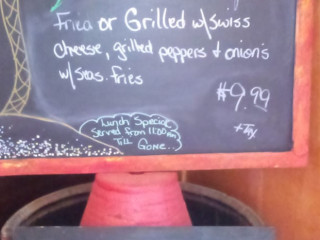 Fried or Grilled w/swiss
cheese, grilled peppers + onion's
w/seas. fries
$9.99
+Tax
Lunch Special
Served from 11:00am
Till Gone..